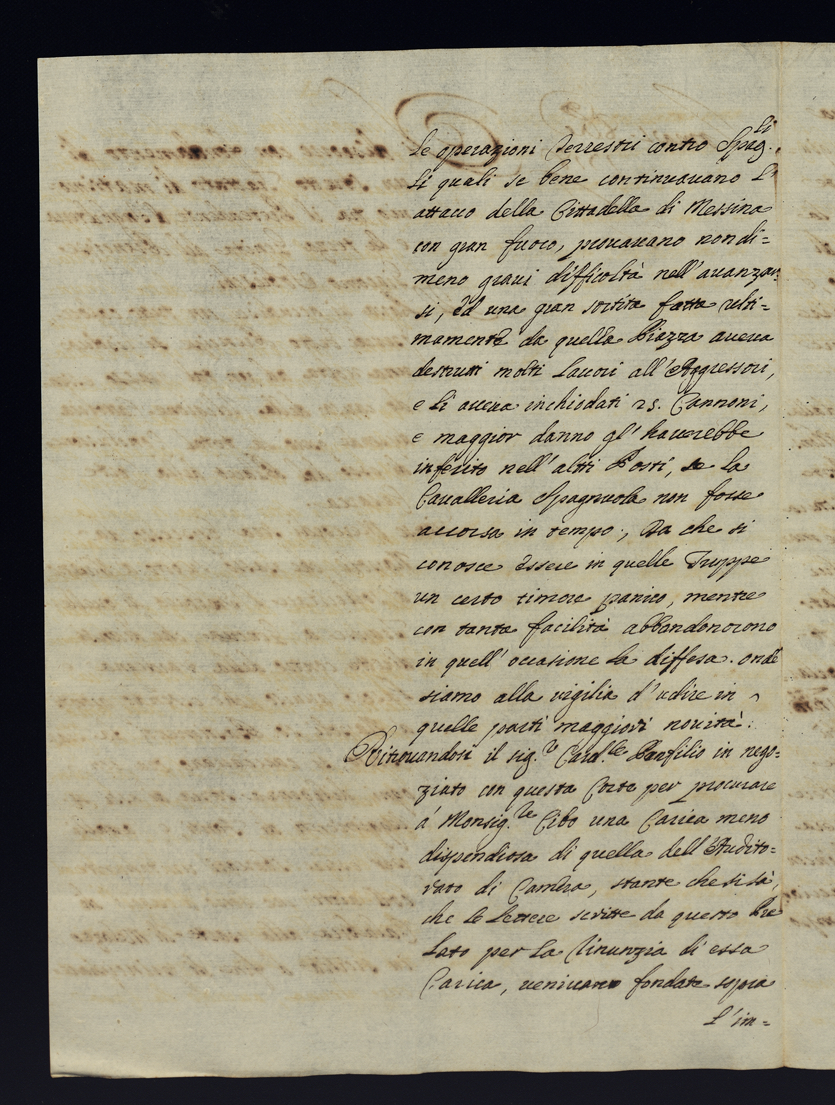 le operazioni terrestri contro Spag.li
li quali se bene continuauano l'
attacco della Cittadella di Messina
con gran fuoco, prouauano nondi=
meno graui difficoltà nell'auanzar=
si, ed una gran sortita fatta ulti=
mamente da quella Piazza aueua
destrutti molti Lauori all'Aggressori,
e li aueua inchiodati 25. Cannoni,
e maggior danno gl'hauerebbe
inferito nell'altri Posti, se la
Cavalleria Spagnuola non fosse
accorsa in tempo, Da che si
conosce essere in quelle Truppe
un certo timore panico, mentre
con tanta facilità abbandonorono
in quell'occasione la diffesa. onde
siamo alla vigilia d'udire in
quelle parti maggiori nouità.
Ritrouandosi il sig.r Card.le Panfilio in nego=
ziato con questa Corte per procurare
á Monsig.re Cibo una Carica meno
dispendiosa di quella dell'Audito=
rato di Camera, stante che si sà,
che le lettere scritte da questo Pre
lato per la Rinunzia di essa
Carica, veniuano fondate sopra
l'im=